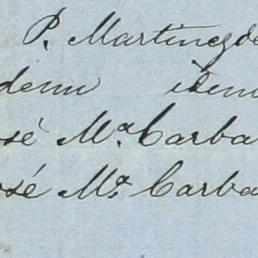 P. Martinez de
idem idem
José Mª Carba
José Mª Carba